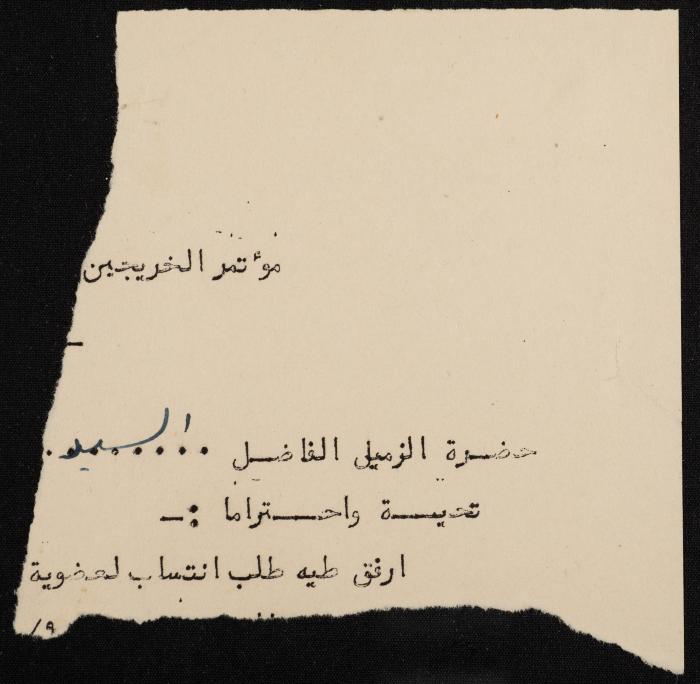 مؤتمر الخريجين
حضرة الزميل الفاضل ........ السيد
تحية واحتراما :-
ارفق طيه طلب انتساب لعضوية
/٩